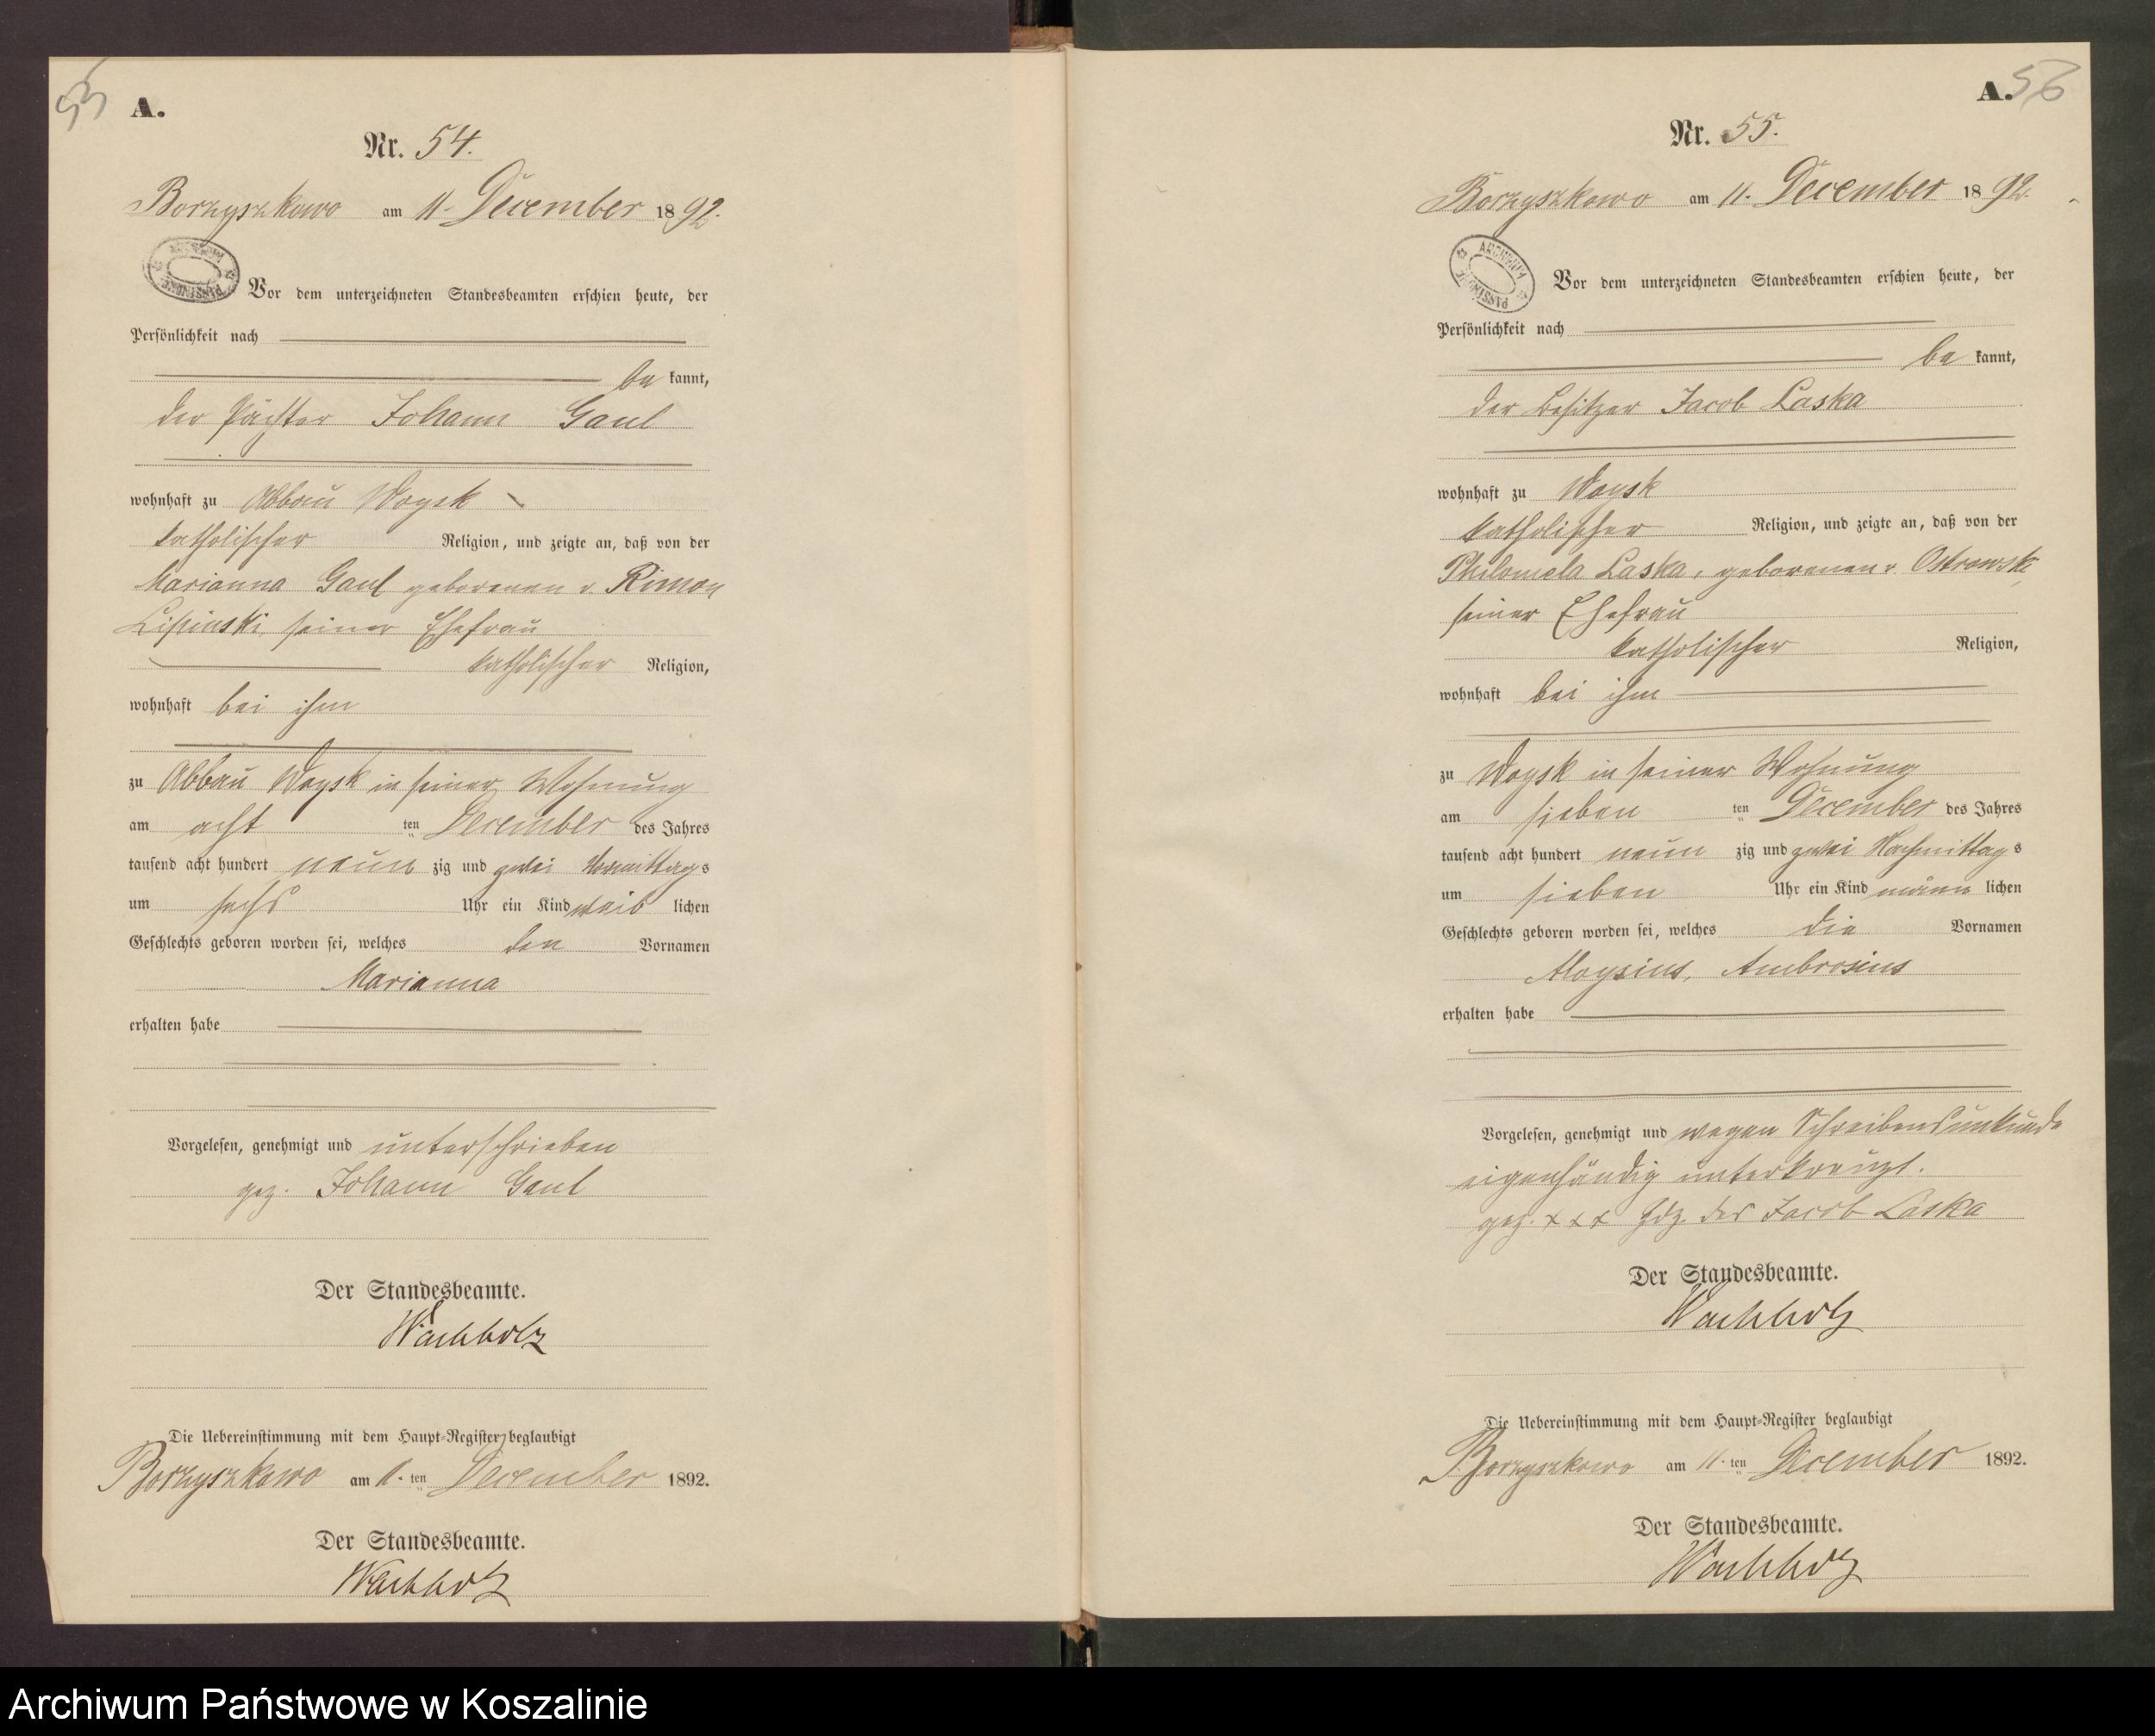 55
A.
Nr. 54.
Borzyszkowo am 11. December 1892.
Vor dem unterzeichneten Standesbeamten erschien heute, der
Persönlichkeit nach
be kannt,
der Pächter Johann Gaul
wohnhaft zu Abbau Woysk
katholischer Religion, und zeigte an, daß von der
Marianna Gaul geborenen v.
Lipinski, seiner Ehefrau
katholischer Religion,
wohnhaft bei ihm
zu Abbau Woysk in seiner Wohnung
am acht ten December des Jahres
tausend acht hundert neun zig und zwei Vormittags
um sechs Uhr ein Kind weib lichen
Geschlechts geboren worden sei, welches den Vornamen
Marianna
erhalten habe
Vorgelesen, genehmigt und unterschrieben
gez. Johann Gaul
Der Standesbeamte.
Wachholz
Die Uebereinstimmung mit dem Haupt-Register beglaubigt
Borzyszkowo am 11. ten December 1892.
Der Standesbeamte.
Wachholz
A. 56
Nr. 55.
Borzyszkowo am 11. December 1892.
ARCHIWUM
Vor dem unterzeichneten Standesbeamten erschien heute, der
Persönlichkeit nach
be kannt,
der Besitzer Jacob Laska
wohnhaft zu Woysk
katholischer Religion, und zeigte an, daß von der
Philomela Laska, geborenen v. Ostrowsk
seiner Ehefrau
katholischer Religion,
wohnhaft bei ihm
zu Woysk in seiner Wohnung
am sieben ten December des Jahres
tausend acht hundert neun zig und zwei Nachmittags
um sieben Uhr ein Kind männ lichen
Geschlechts geboren worden sei, welches die Vornamen
Aloysius, Ambrosius
erhalten habe
Vorgelesen, genehmigt und wegen Schreibensunkunde
eigenhändig unterkreuzt.
gez. x x x Hdz. des Jacob Laska
Der Standesbeamte.
Wachholz
Die Uebereinstimmung mit dem Haupt-Register beglaubigt
Borzyszkowo am 11. ten December 1892.
Der Standesbeamte.
Wachholz
Archiwum Państwowe w Koszalinie